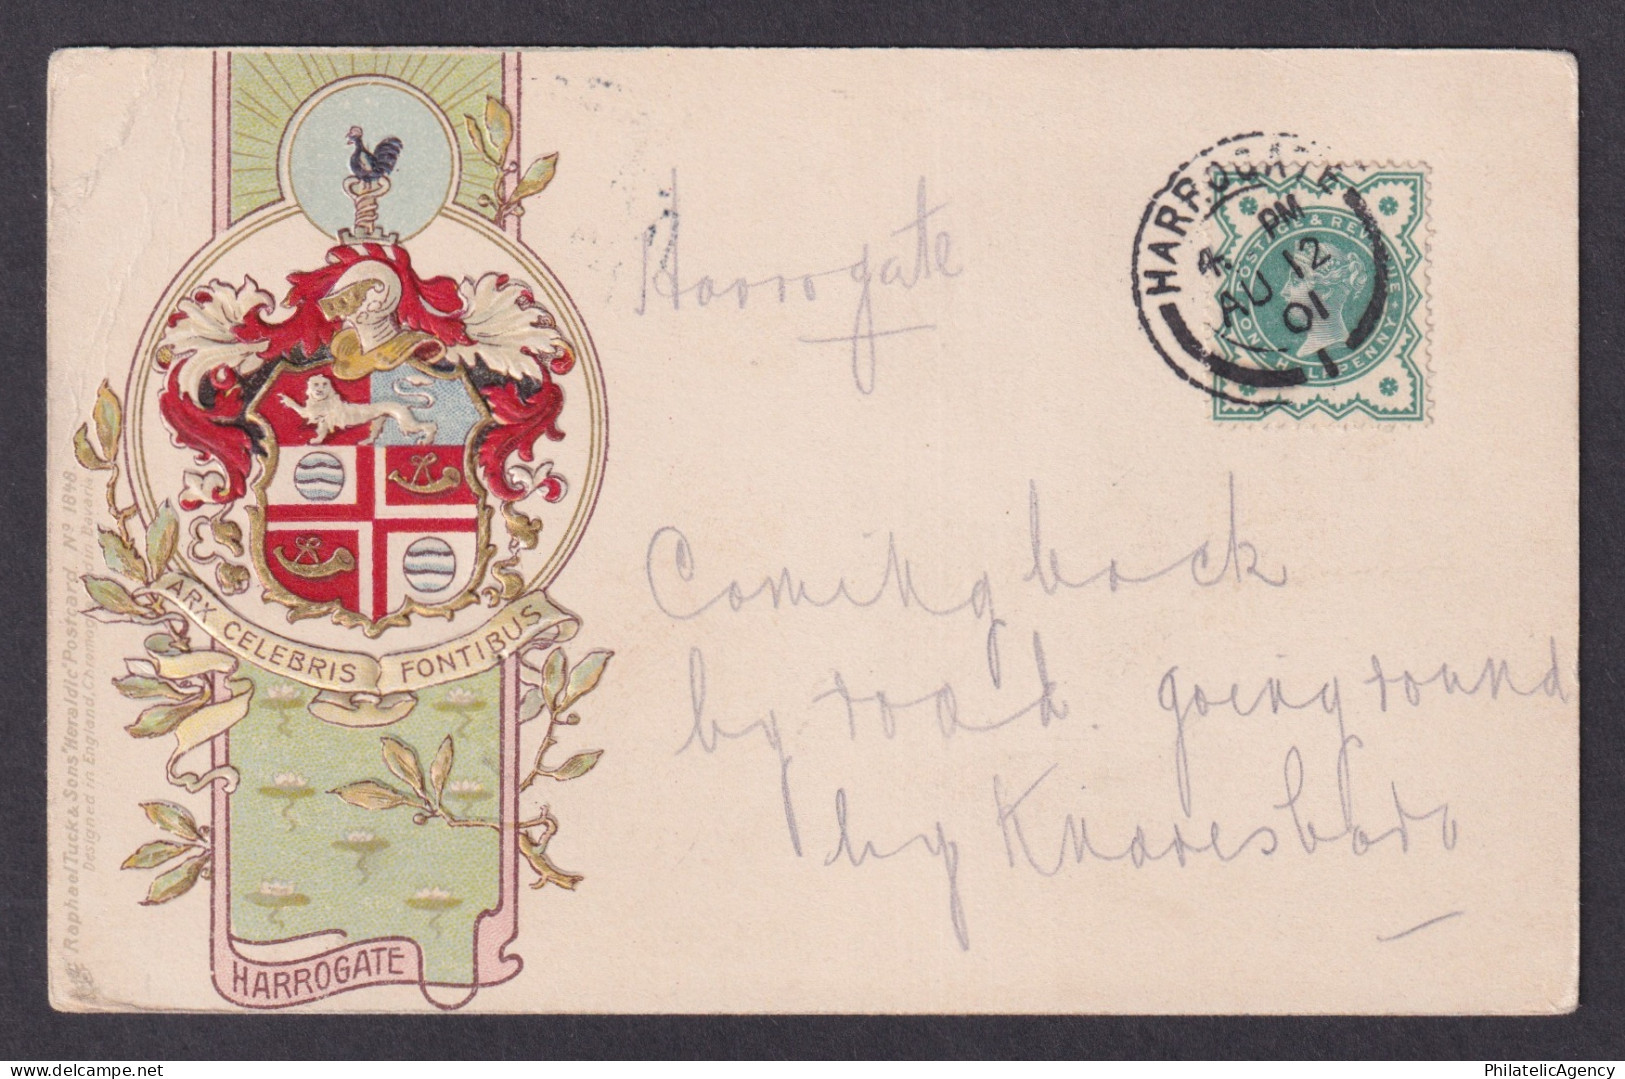 Harrogate
Coming back
by road. going round
by Knaresboro
HARROGATE
PM
AU 12
01
1
POSTAGE & REVENUE
ONE HALFPENNY
ARX CELEBRIS FONTIBUS
HARROGATE
Raphael Tuck & Sons' "Heraldic" Postcard, Nº 1848
Designed in England, Chromographed in Bavaria
PhilatelicAgency